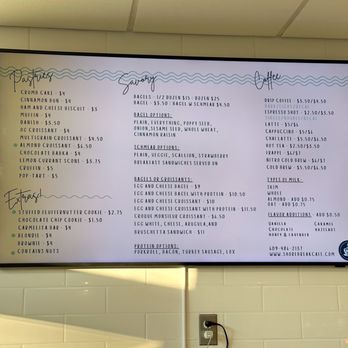 Pastries
CRUMB CAKE - $4
CINNAMON BUN - $4
HAM AND CHEESE BISCUIT - $5
MUFFIN - $4
DANISH - $3.50
OG CROISSANT - $4
MULTIGRAIN CROISSANT - $4.50
ALMOND CROISSANT - $4.50
CHOCOLATE BABKA - $4
LEMON CURRANT SCONE - $3.75
CRUFFIN - $5
POP-TART - $5
Extras
STUFFED FLUFFERNUTTER COOKIE - $2.75
CHOCOLATE CHIP COOKIE - $1.50
CARMELITA BAR - $4
BLONDIE - $4
BROWNIE - $4
CONTAINS NUTS
Savory
BAGELS - 1/2 DOZEN $15 - DOZEN $25
BAGEL - $3.50 - BAGEL W SCHMEAR $4.50
BAGEL OPTIONS:
PLAIN, EVERYTHING, POPPY SEED,
ONION, SESAME SEED, WHOLE WHEAT,
CINNAMON RAISIN
SCHMEAR OPTIONS:
PLAIN, VEGGIE, SCALLION, STRAWBERRY
BREAKFAST SANDWICHES SERVED ON
BAGELS OR CROISSANTS:
EGG AND CHEESE BAGEL - $9
EGG AND CHEESE BAGEL WITH PROTEIN - $10.50
EGG AND CHEESE CROISSANT - $10
EGG AND CHEESE CROISSANT WITH PROTEIN - $11.50
CROQUE MONSIEUR CROISSANT - $6.50
EGG WHITE, CHEESE, ARUGULA, AND
BRUSCHETTA SANDWICH - $11
PROTEIN OPTIONS:
PORKROLL, BACON, TURKEY SAUSAGE, LOX
Coffee
DRIP COFFEE - $3.50/$4.50
ESPRESSO SHOT - $2.50/$3.50
LATTE - $5/$6
CAPPUCCINO - $5/$6
CHAI LATTE - $5.50/$6.50
HOT TEA - $2.50/$3.50
FRAPPE - $6/$7
COLD BREW - $4/$5
NITRO COLD BREW - $5.50/$6.50
TYPES OF MILK:
SKIM
WHOLE
ALMOND - ADD $0.75
OAT - ADD $0.75
FLAVOR ADDITIONS - ADD $0.50
VANILLA CARAMEL
CHOCOLATE HAZELNUT
HONEY & LAVENDER
609-486-2137
WWW.SHOREBREAKCAFE.COM